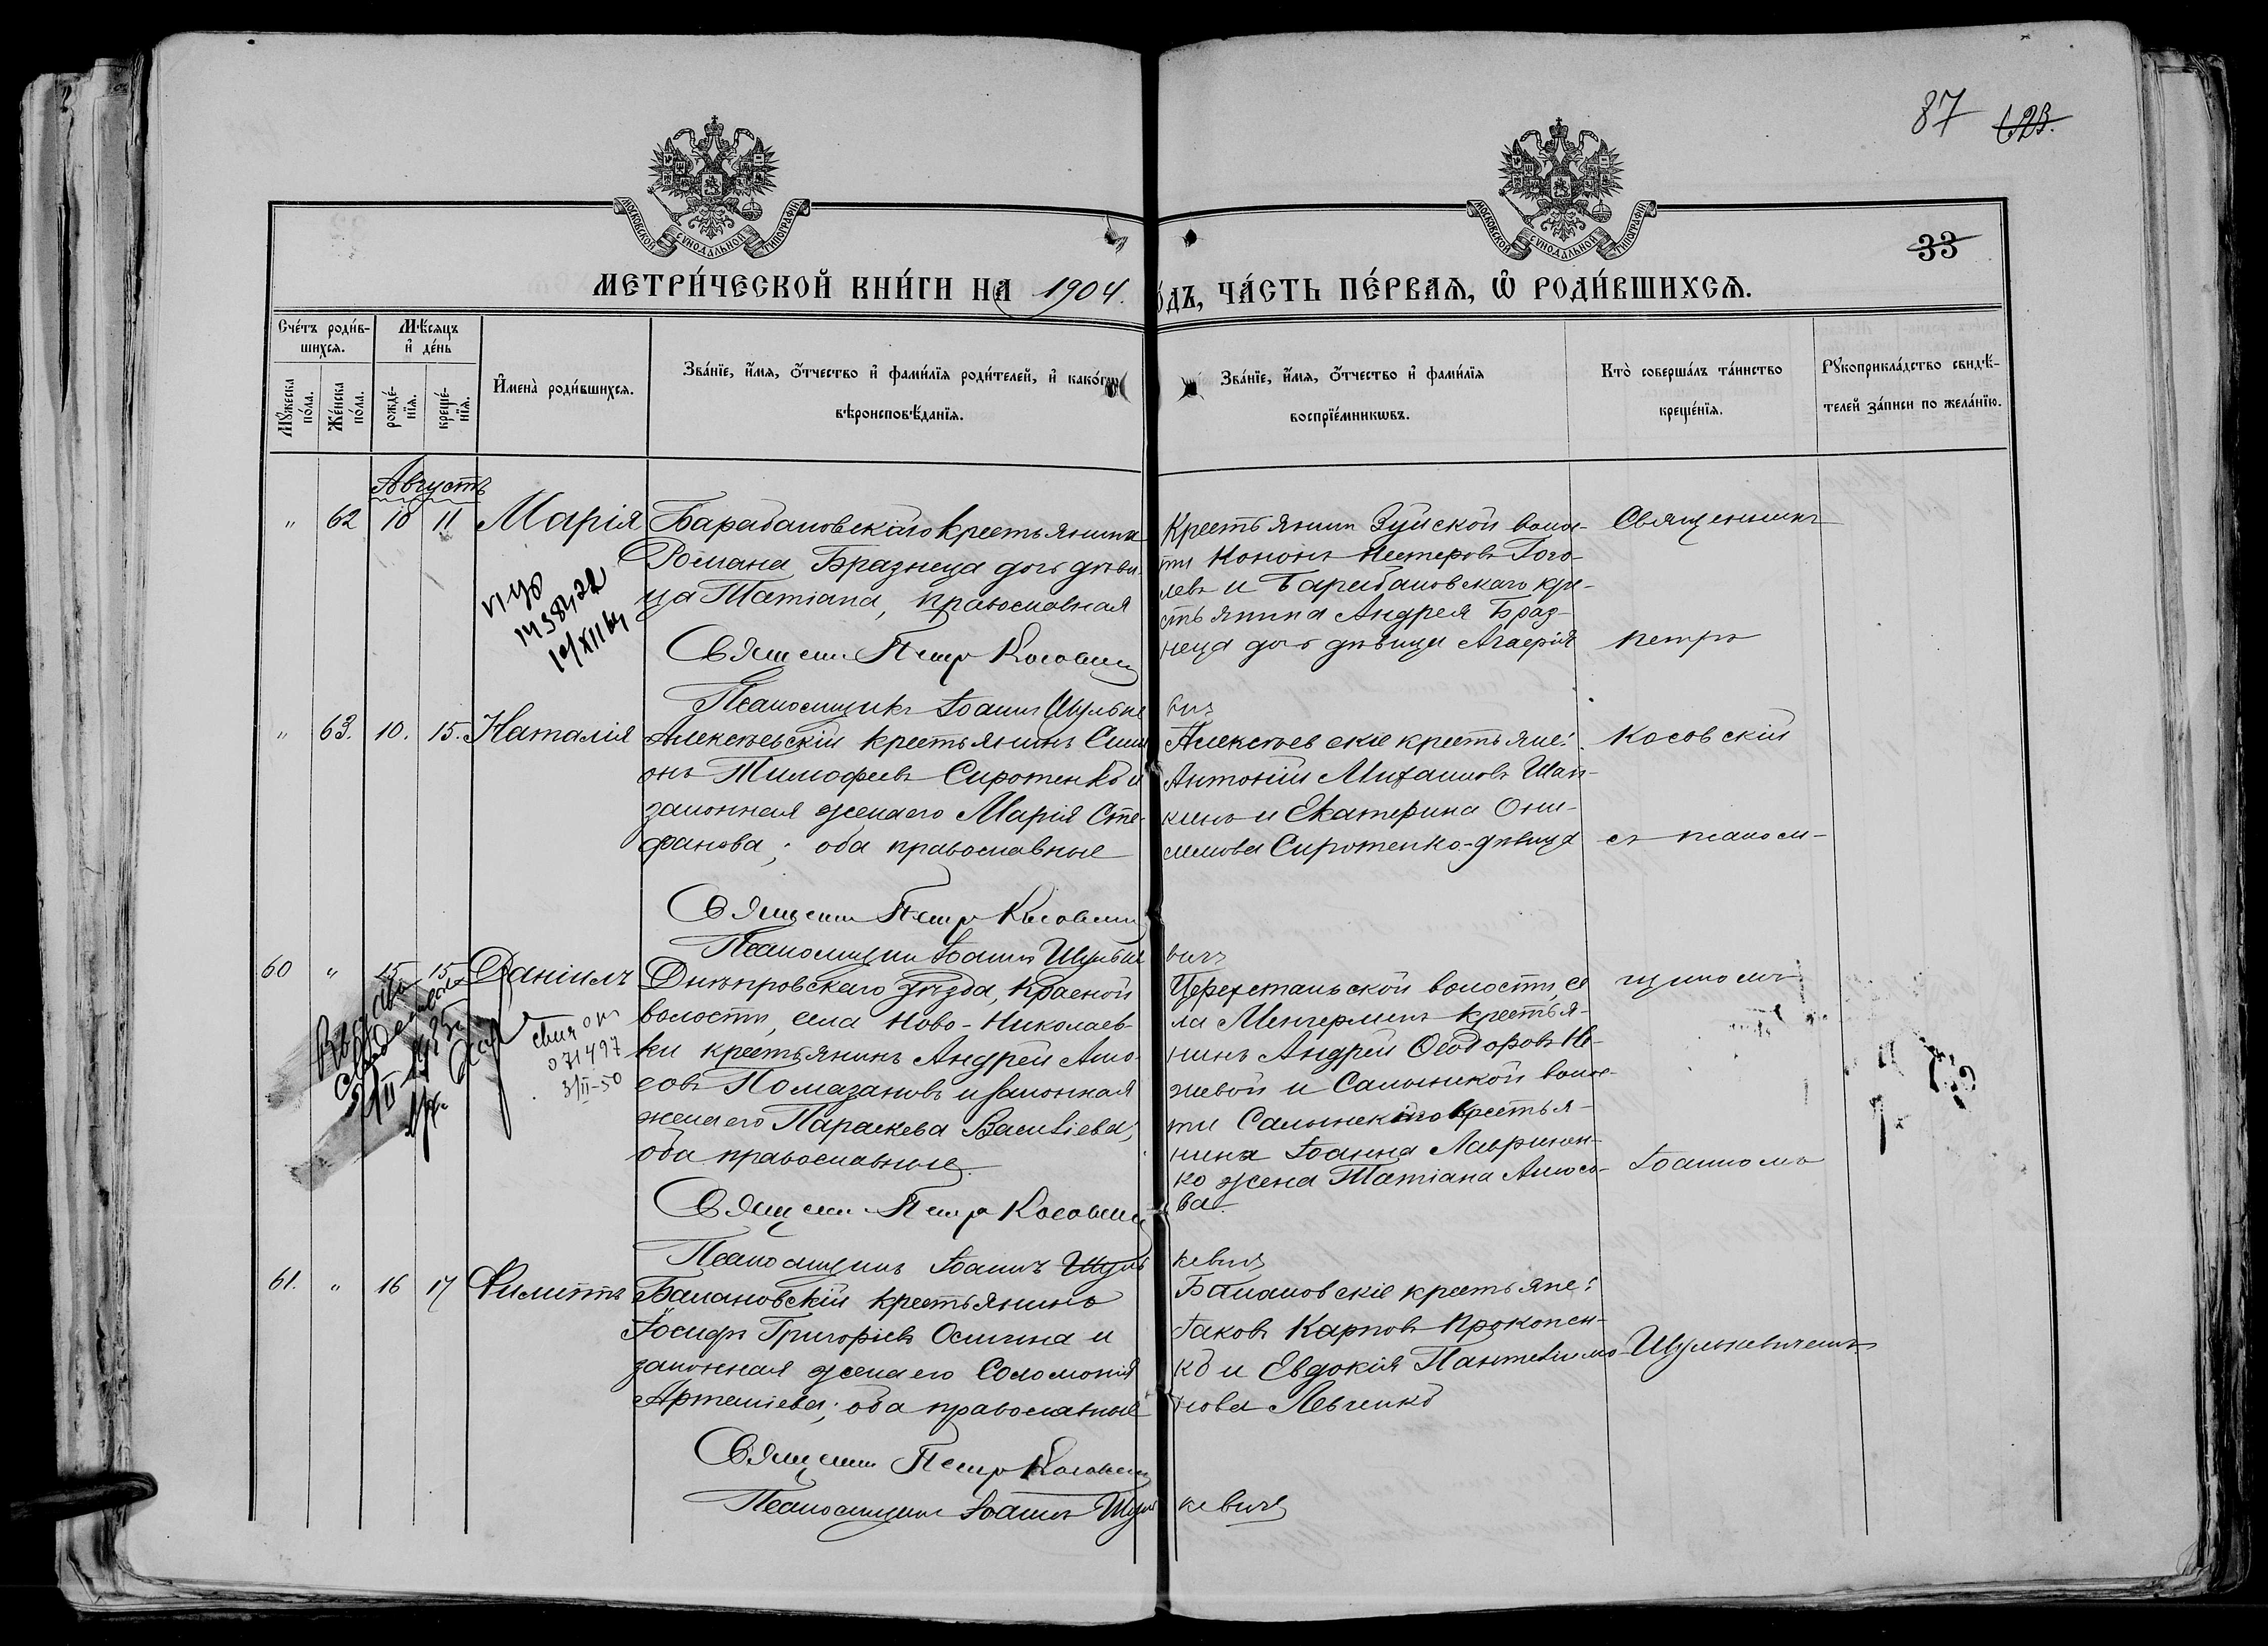 87 123.
МОСКОВСКОЙ СѴНОДАЛЬНОЙ ТИПОГРАФІИ
МОСКОВСКОЙ СѴНОДАЛЬНОЙ ТИПОГРАФІИ
33
МЕТРИ́ЧЕСКОЙ КНИ́ГИ НА 1904.
о́дъ, ЧА́СТЬ ПЕ́РВАѦ, Ѡ҆ РОДИ́ВШИХСѦ.
Сче́тъ роди́в-
шихсѧ.
Мꙋ́жеска по́ла.
Же́нска по́ла.
Мѣ́сяцъ
и҆ де́нь
рожде́-
нїѧ.
креще́-
нїѧ.
И҆мена̀ роди́вшихсѧ.
Зва́нїе, и҆́мѧ, ѻ҆́тчество и҆ фами́лїѧ роди́телей, и҆ како́гѡ
вѣроисповѣ́данїѧ.
Зва́нїе, и҆́мѧ, ѻ҆́тчество и҆ фами́лїѧ
воспрїе́мникѡвъ.
Кто̀ соверша́лъ та́инство
креще́нїѧ.
Рꙋкоприкла́дство свидѣ́-
телей за́писи по жела́нїю.
Августъ
" 62 10 11 Марія
Барабановскаго крестьянина
Романа Бразнеца дочь дѣви-
ца Татіана, православная
Священ. Петръ Косовскій
Псаломщикъ Іоаннъ Шульке
вичъ
Крестьянин Зуйской волос-
ти Кононъ Нестеровъ Гого-
левъ и Барабановскаго кре-
стьянина Андрея Браз-
неца дочь дѣвица Агаѳрія
Священникъ
Петръ
" 63. 10. 15. Наталія
Алексѣевскій крестьянинъ Сими
онъ Тимоѳеевъ Сиротенко и
законная жена его Марія Сте-
фанова; оба православные
Священ. Петръ Косовскій
Псаломщикъ Іоаннъ Шульке
вичъ
Алексѣевскіе крестьяне:
Антоній Михаиловъ Шап-
кинъ и Екатерина Они-
симова Сиротенко-дѣвица
Косовскій
съ псалом-
60 " 15 15 Даніилъ
071497
3/II-50
Днѣпровскаго уѣзда, Красной
волости, села Ново-Николаев-
ки крестьянинъ Андрей Амо-
совъ Помазановъ и законная
жена его Параскева Василіева;
оба православные.
Священ. Петръ Косовскій
Псаломщикъ Іоаннъ Шуль
кевичъ
волости, се
ла крестья-
нинъ Андрей Ѳеодоровъ Не-
живой и волос-
ти крестья-
нина Іоанна Лавринен-
ко жена Татіана Амосо-
ва.
щикомъ
Іоанномъ
61. " 16 17
Балановскій крестьянинъ
Іосифъ Григоріевъ Осичка и
законная жена его Соломонія
Артеміева; оба православные
Священ. Петръ Косовскій
Псаломщикъ Іоаннъ Шуль
кевичъ
Балановскіе крестьяне:
Іаковъ Карповъ Прокопен-
ко и Евдокія Пантелеимо
нова Левченко
Шулькевичемъ.